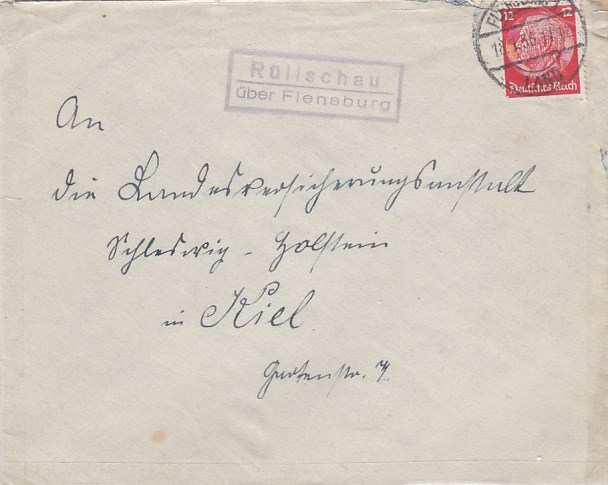 12 12
Deutsches Reich
LAND
Rüllschau
über Flensburg
An
die Landesversicherungsanstalt
Schleswig - Holstein
in Kiel.
Gartenstr.